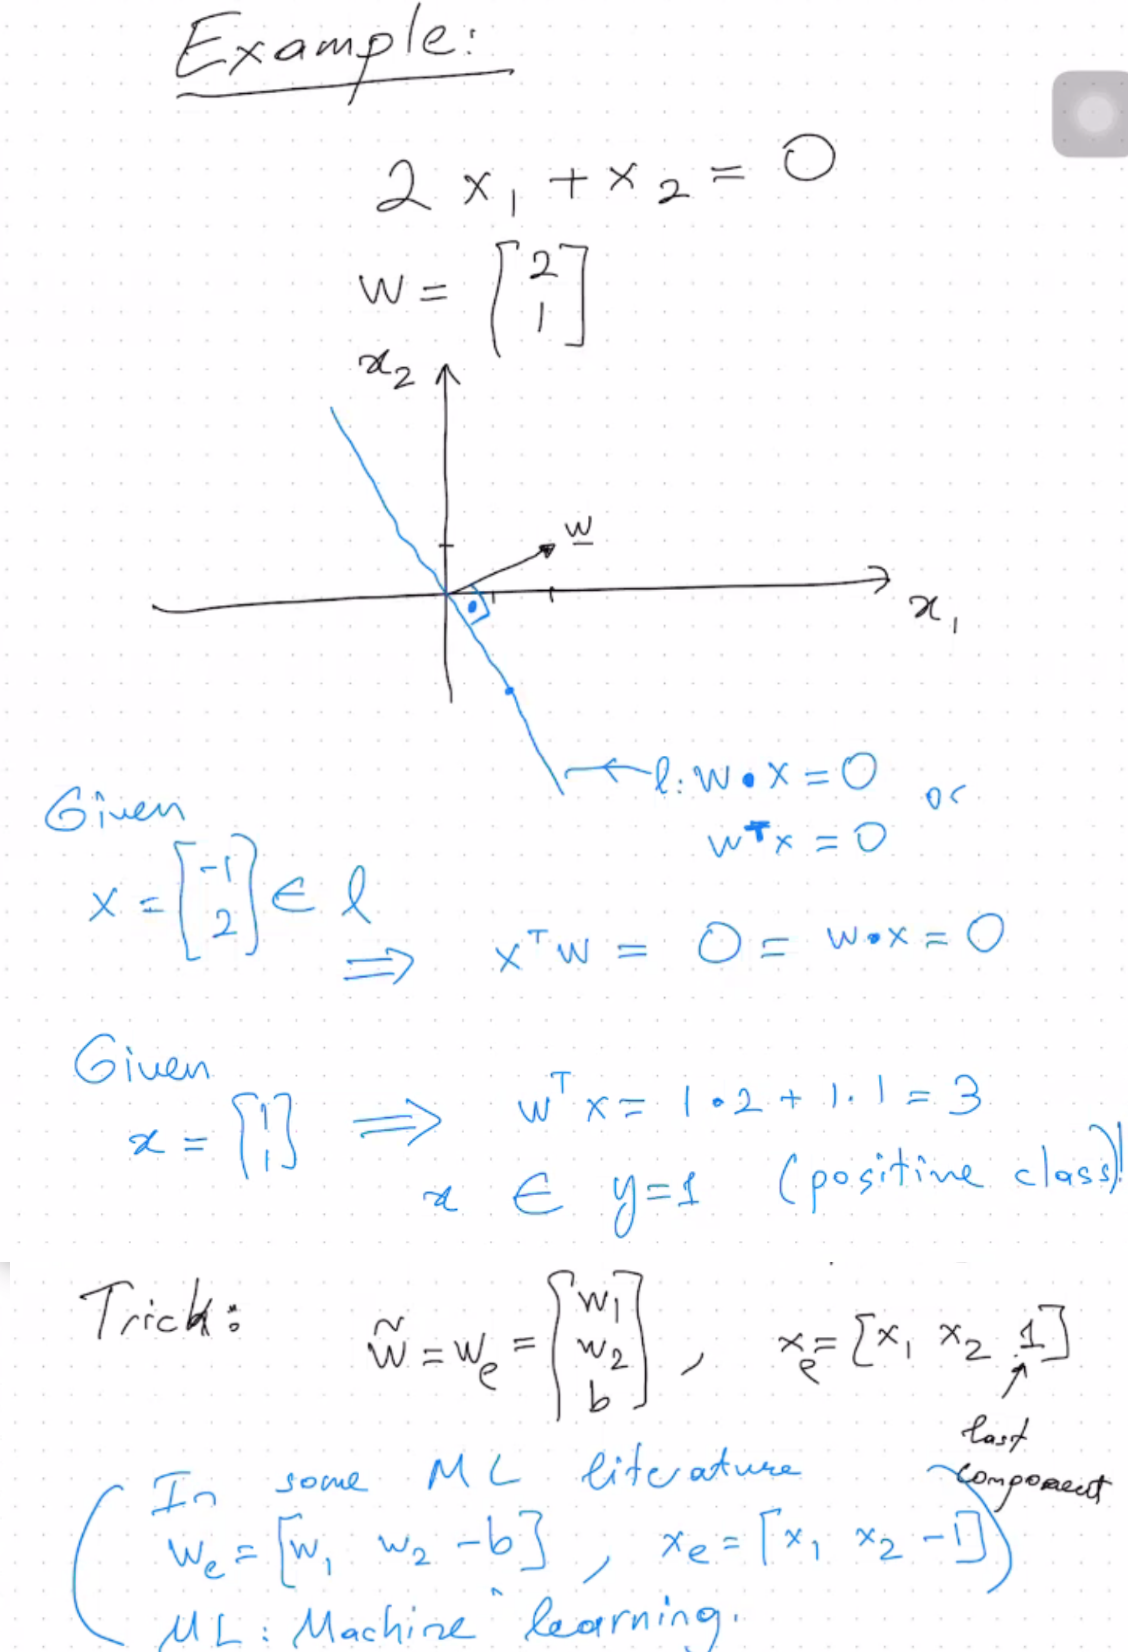 Example:
2 x₁ + x₂ = 0
w = [2 1]
x₂
w
x₁
l: w • x = 0 or
wᵀx = 0
Given
x = [-1 2] ∈ l
⇒ xᵀw = 0 = w•x = 0
Given
x = [1 1] ⇒ wᵀx = 1•2 + 1.1 = 3
x ∈ y=1 (positive class)!
Trick:
w̃ = wₑ = [w₁ w₂ b] , xₑ = [x₁ x₂ 1]
last
component
(In some ML literature
wₑ = [w₁ w₂ -b] , xₑ = [x₁ x₂ -1])
ML: Machine learning.